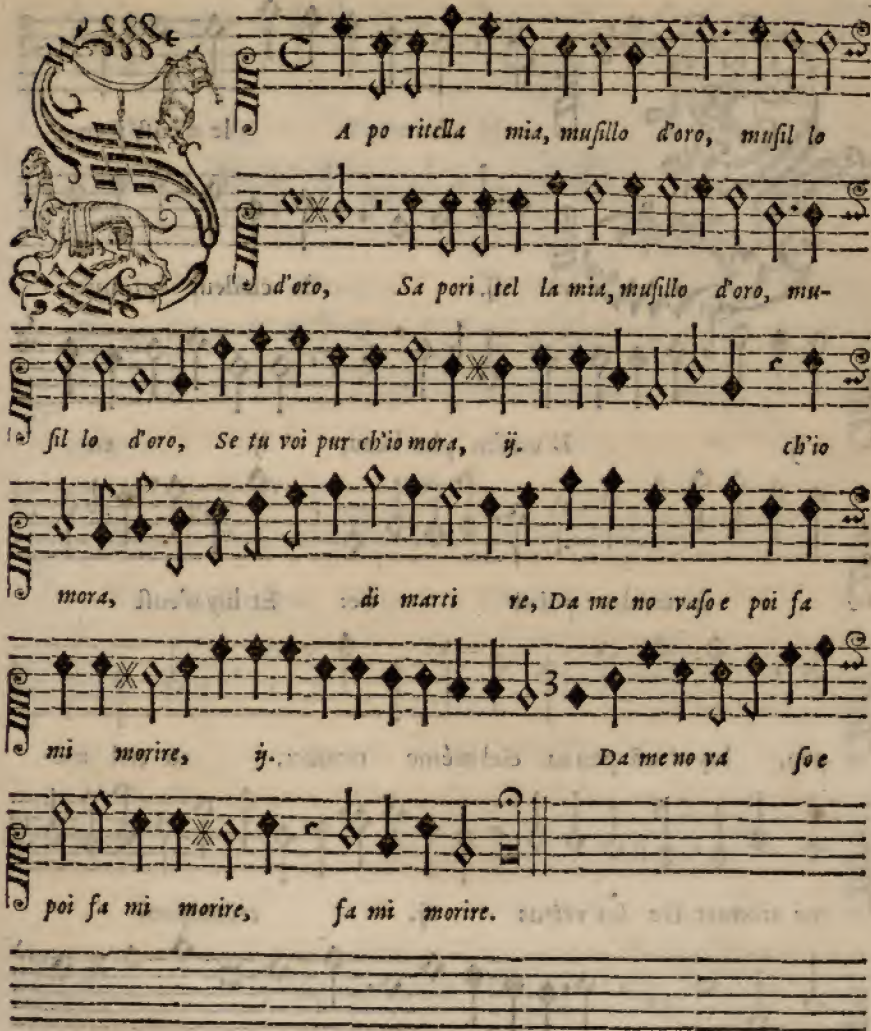 SA po ritella mia, muſillo d'oro, muſil lo
d'oro, Sa pori tel la mia, muſillo d'oro, mu-
ſil lo d'oro, Se tu voi pur ch'io mora, ij. ch'io
mora, di marti re, Da me no vaſo e poi fa
mi morire, ij. Da me no va ſo e
poi fa mi morire, fa mi morire.